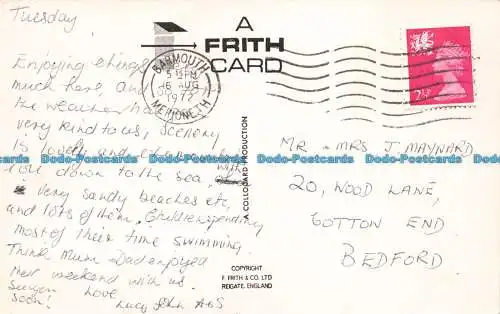 Tuesday
Enjoying
much here, and
the weather
very kind to us, Scenery
Is lovely and
down to the sea,
very sandy beaches etc,
and lots of them,
most of their time swimming.
Think Mum Dad enjoyed
weekend with us.
Soon! Love
Lucy John
A
FRITH
CARD
BARMOUTH
MERIONETH
5 15PM
16 AUG
1972
2½P
A COLLOCARD PRODUCTION
MR + MRS J MAYNARD
20, WOOD LANE,
COTTON END
BEDFORD
COPYRIGHT
F. FRITH & CO. LTD
REIGATE, ENGLAND
Bobo-Postcards.com Bobo-Postcards.com Bobo-Postcards.com Bobo-Postcards.com